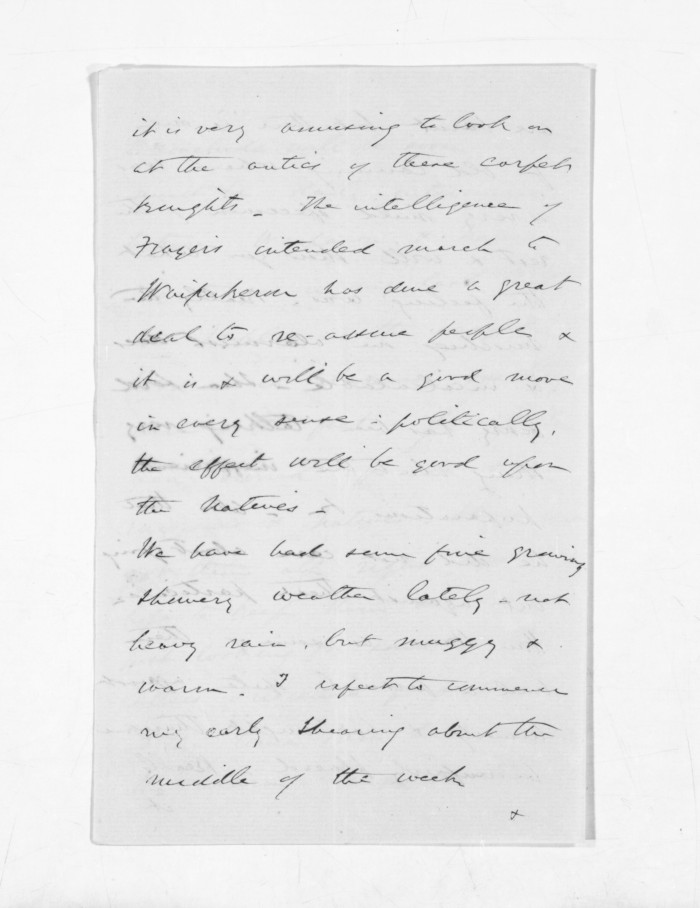 it is very amusing to look on
at the antics of these carpet
Knights_ The intelligence of
Frazers intended march to
Waipukerau has done a great
deal to re-assure people &
it is & will be a good move
in every sense - politically,
the effect will be good upon
the Natives -
We have had some fine growing
showery weather lately - not
heavy rain, but muggy &
warm. I expect to commence
my early shearing about the
middle of the week
&